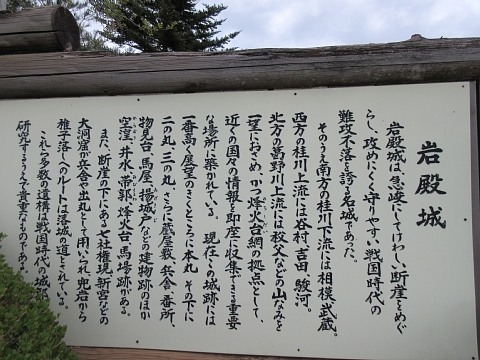 岩殿城
岩殿城は、急峻にしてけわしい断崖をめぐ
らし、攻めにくく守りやすい戦国時代の
難攻不落を誇る名城であった。
そのうえ南方の桂川下流には相模、武蔵。
西方の桂川上流には谷村、吉田、駿河。
北方の葛野川上流には秩父などの山なみを
一望におさめ、かつ烽火台網の拠点として、
近くの国々の情報を即座に収集できる重要
な場所に築かれている。現在この城跡には
一番高く展望のきくところに本丸、その下に
二の丸、三の丸、さらに蔵屋敷、兵舎、番所、
物見台、馬屋、揚城戸などの建物跡のほか
空湟、井水、帯郭、烽火台、馬場跡がある。
また、断崖の下にある七社権現、新宮などの
大洞窟が兵舎や出丸として用いられ、兜岩から
稚子落しへのルートは落城の道とされている。
これら多数の遺構は戦国時代の城郭
研究するうえで貴重なものである。